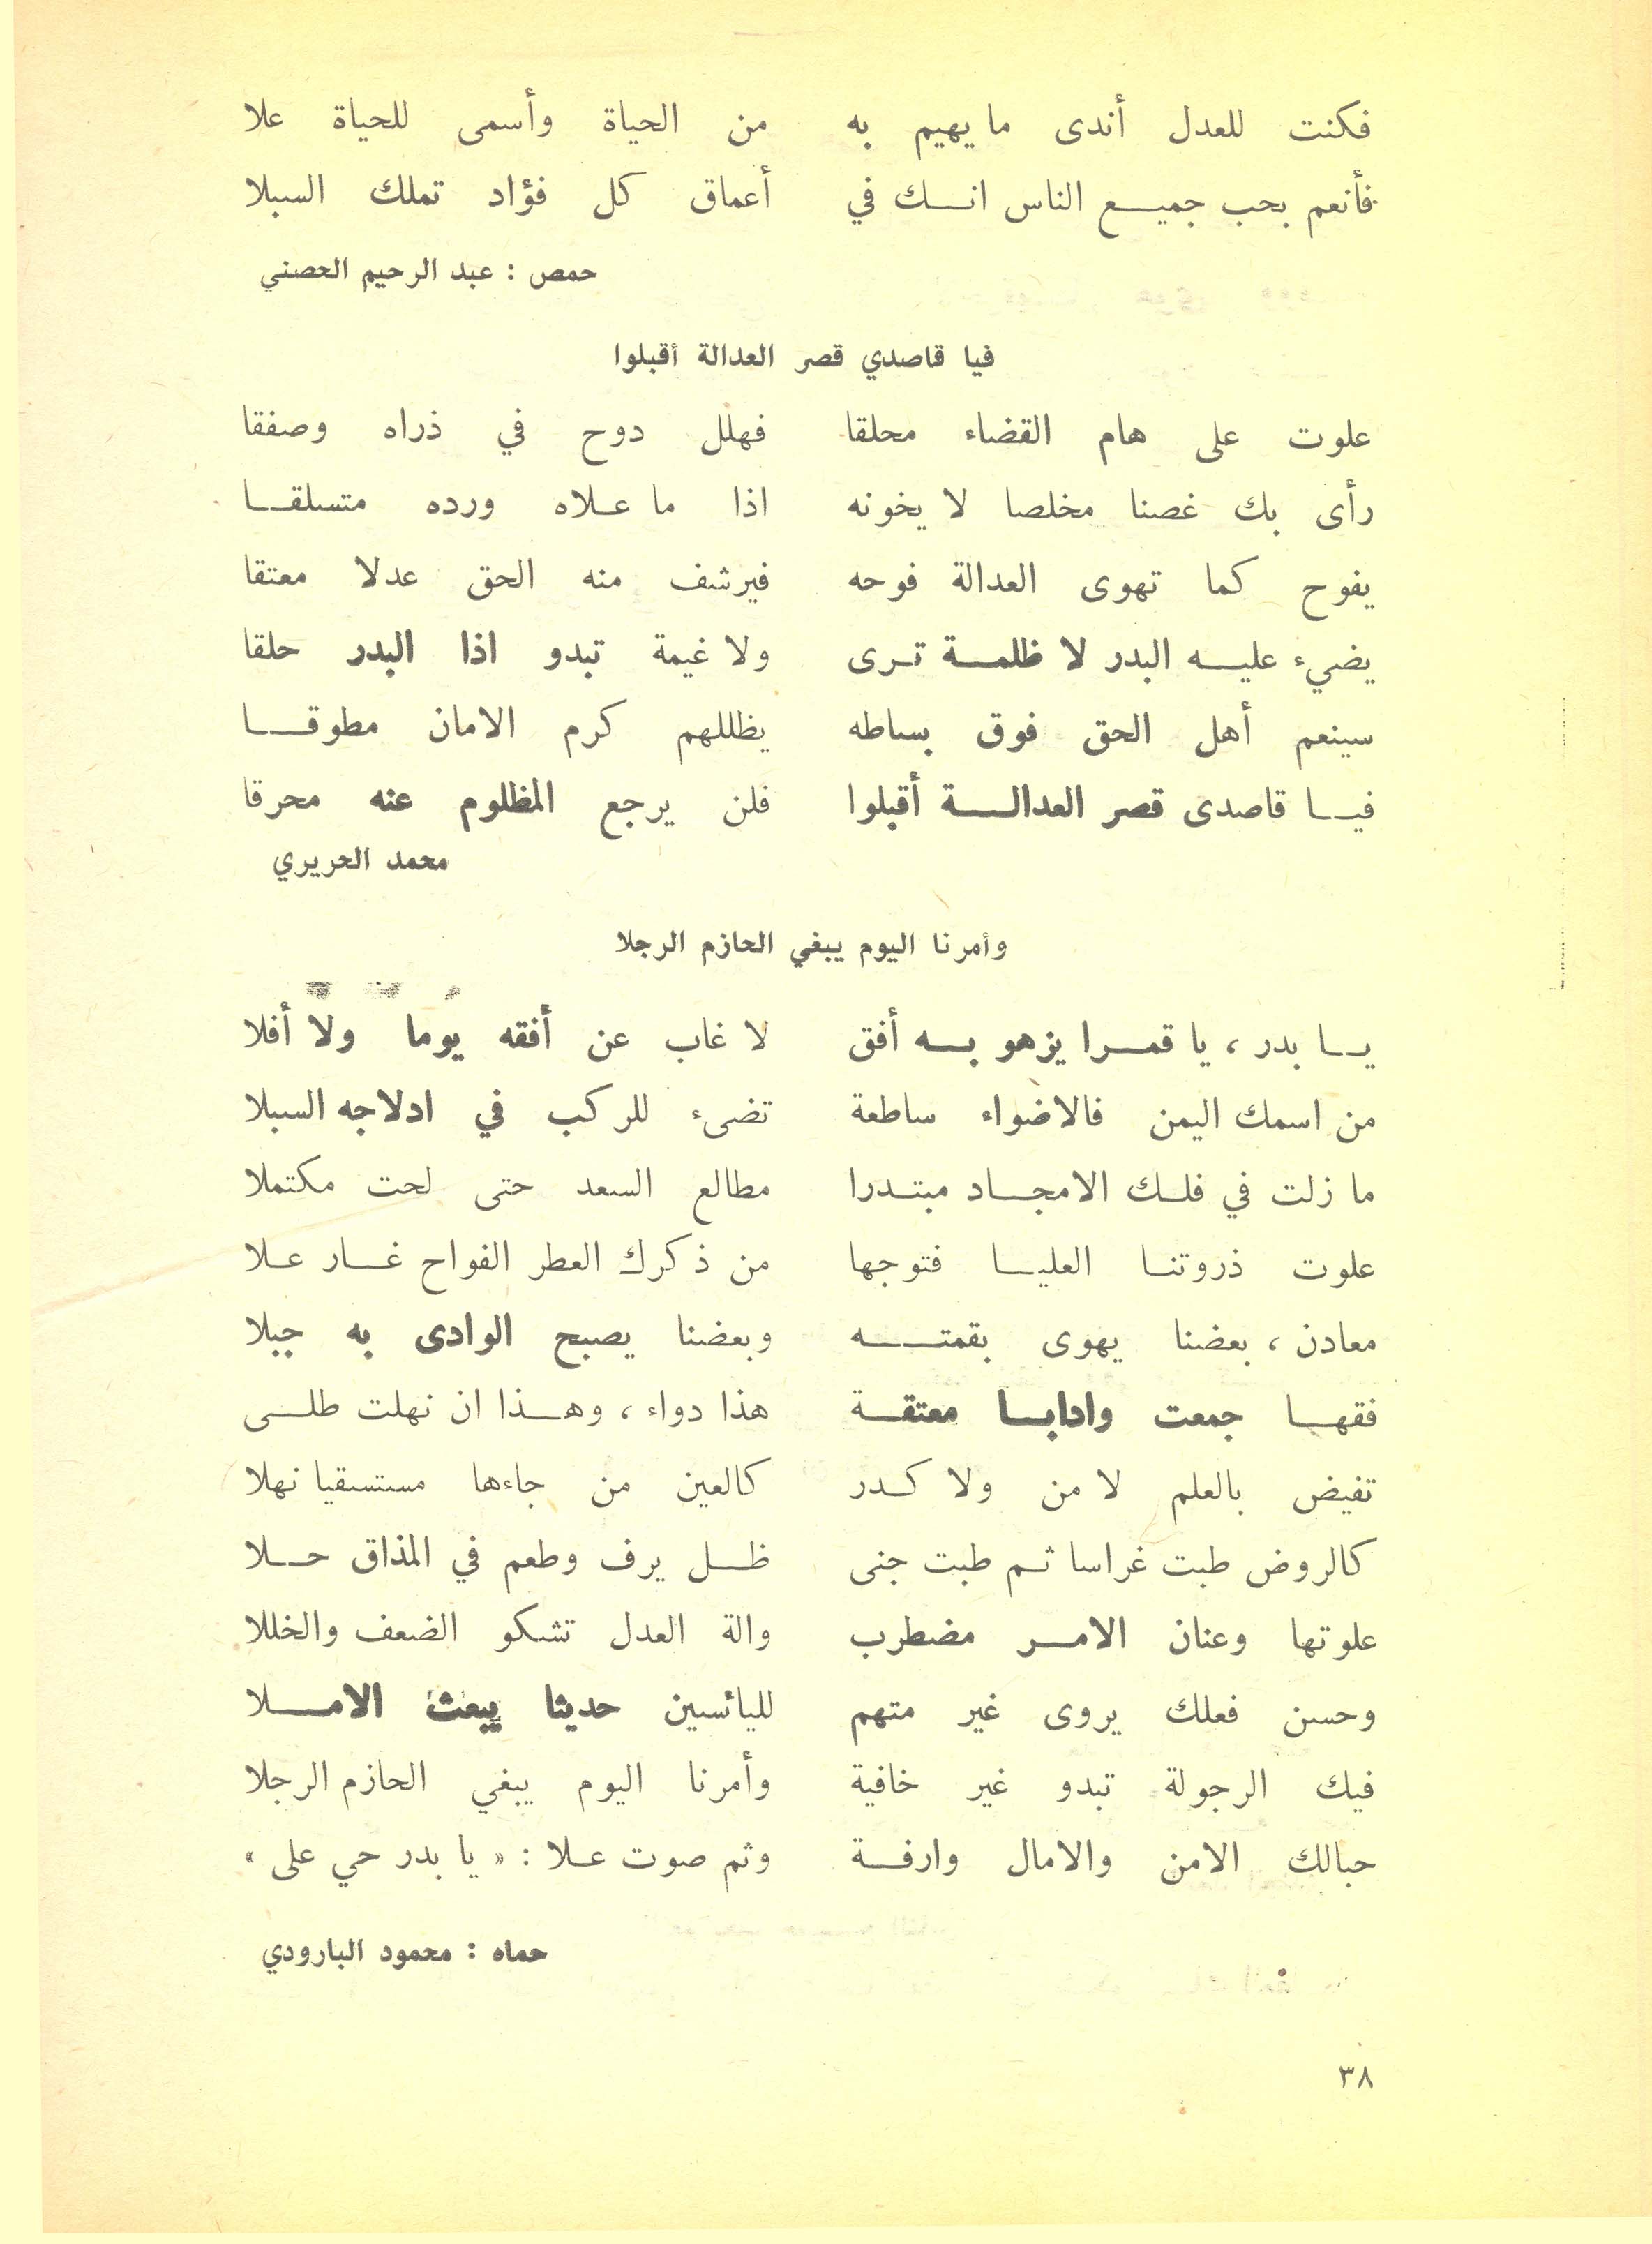 فكنت للعدل أندى ما يهيم به من الحياة وأسمى للحياة علا
فأنعم بحب جميع الناس انك في أعماق كل فؤاد تملك السبلا
حمص : عبد الرحيم الحصني
فيا قاصدي قصر العدالة أقبلوا
علوت على هام القضاء محلقا فهلل دوح في ذراه وصفقا
رأى بك غصنا مخلصا لا يخونه اذا ما علاه ورده متسلقا
يفوح كما تهوى العدالة فوحه فيرشف منه الحق عدلا معتقا
يضيء عليه البدر لا ظلمة ترى ولا غيمة تبدو اذا البدر حلقا
سينعم أهل الحق فوق بساطه يظللهم كرم الامان مطوقا
فيا قاصدى قصر العدالة أقبلوا فلن يرجع المظلوم عنه محرقا
محمد الحريري
وأمرنا اليوم يبغي الحازم الرجلا
يا بدر ، يا قمرا يزهو به أفق لا غاب عن أفقه يوما ولا أفلا
من اسمك اليمن فالاضواء ساطعة تضىء للركب في ادلاجه السبلا
ما زلت في فلك الامجاد مبتدرا مطالع السعد حتى لحت مكتملا
علوت ذروتنا العليا فتوجها من ذكرك العطر الفواح غار علا
معادن ، بعضنا يهوى بقمته وبعضنا يصبح الوادى به جبلا
فقها جمعت وادابا معتقة هذا دواء ، وهذا ان نهلت طلى
تفيض بالعلم لا من ولا كدر كالعين من جاءها مستسقيا نهلا
كالروض طبت غراسا ثم طبت جنى ظل يرف وطعم في المذاق حلا
علوتها وعنان الامر مضطرب والة العدل تشكو الضعف والخللا
وحسن فعلك يروى غير متهم لليائسين حديثا يبعث الاملا
فيك الرجولة تبدو غير خافية وأمرنا اليوم يبغي الحازم الرجلا
حبالك الامن والامال وارفة وثم صوت علا : « يا بدر حي على »
حماه : محمود البارودي
٣٨